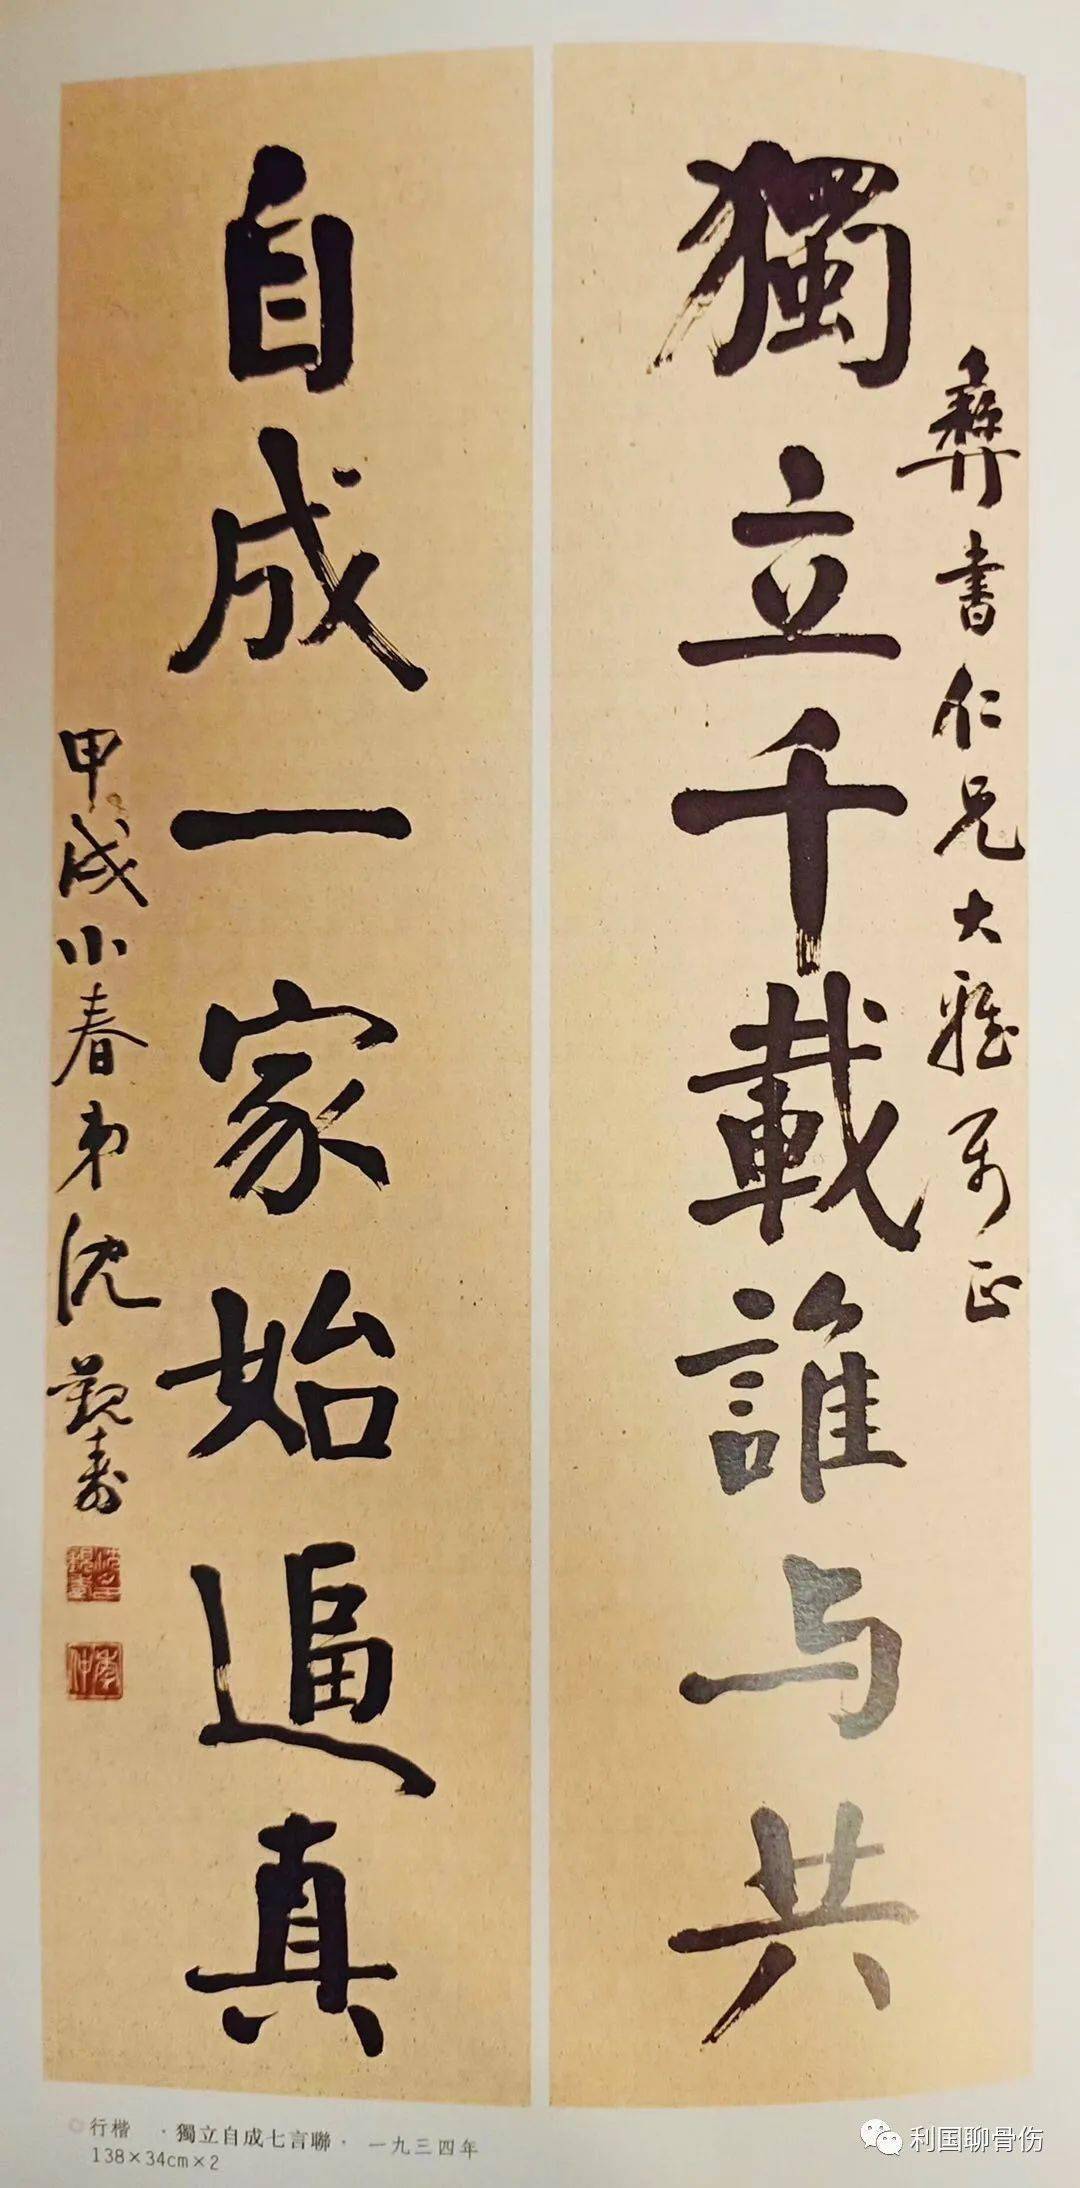 彝書仁兄大雅屬正
獨立千載誰与共
自成一家始逼真
甲戌小春弟沈觀壽
沈觀壽
行楷 ·獨立自成七言聯· 一九三四年
138×34cm×2
利国聊骨伤